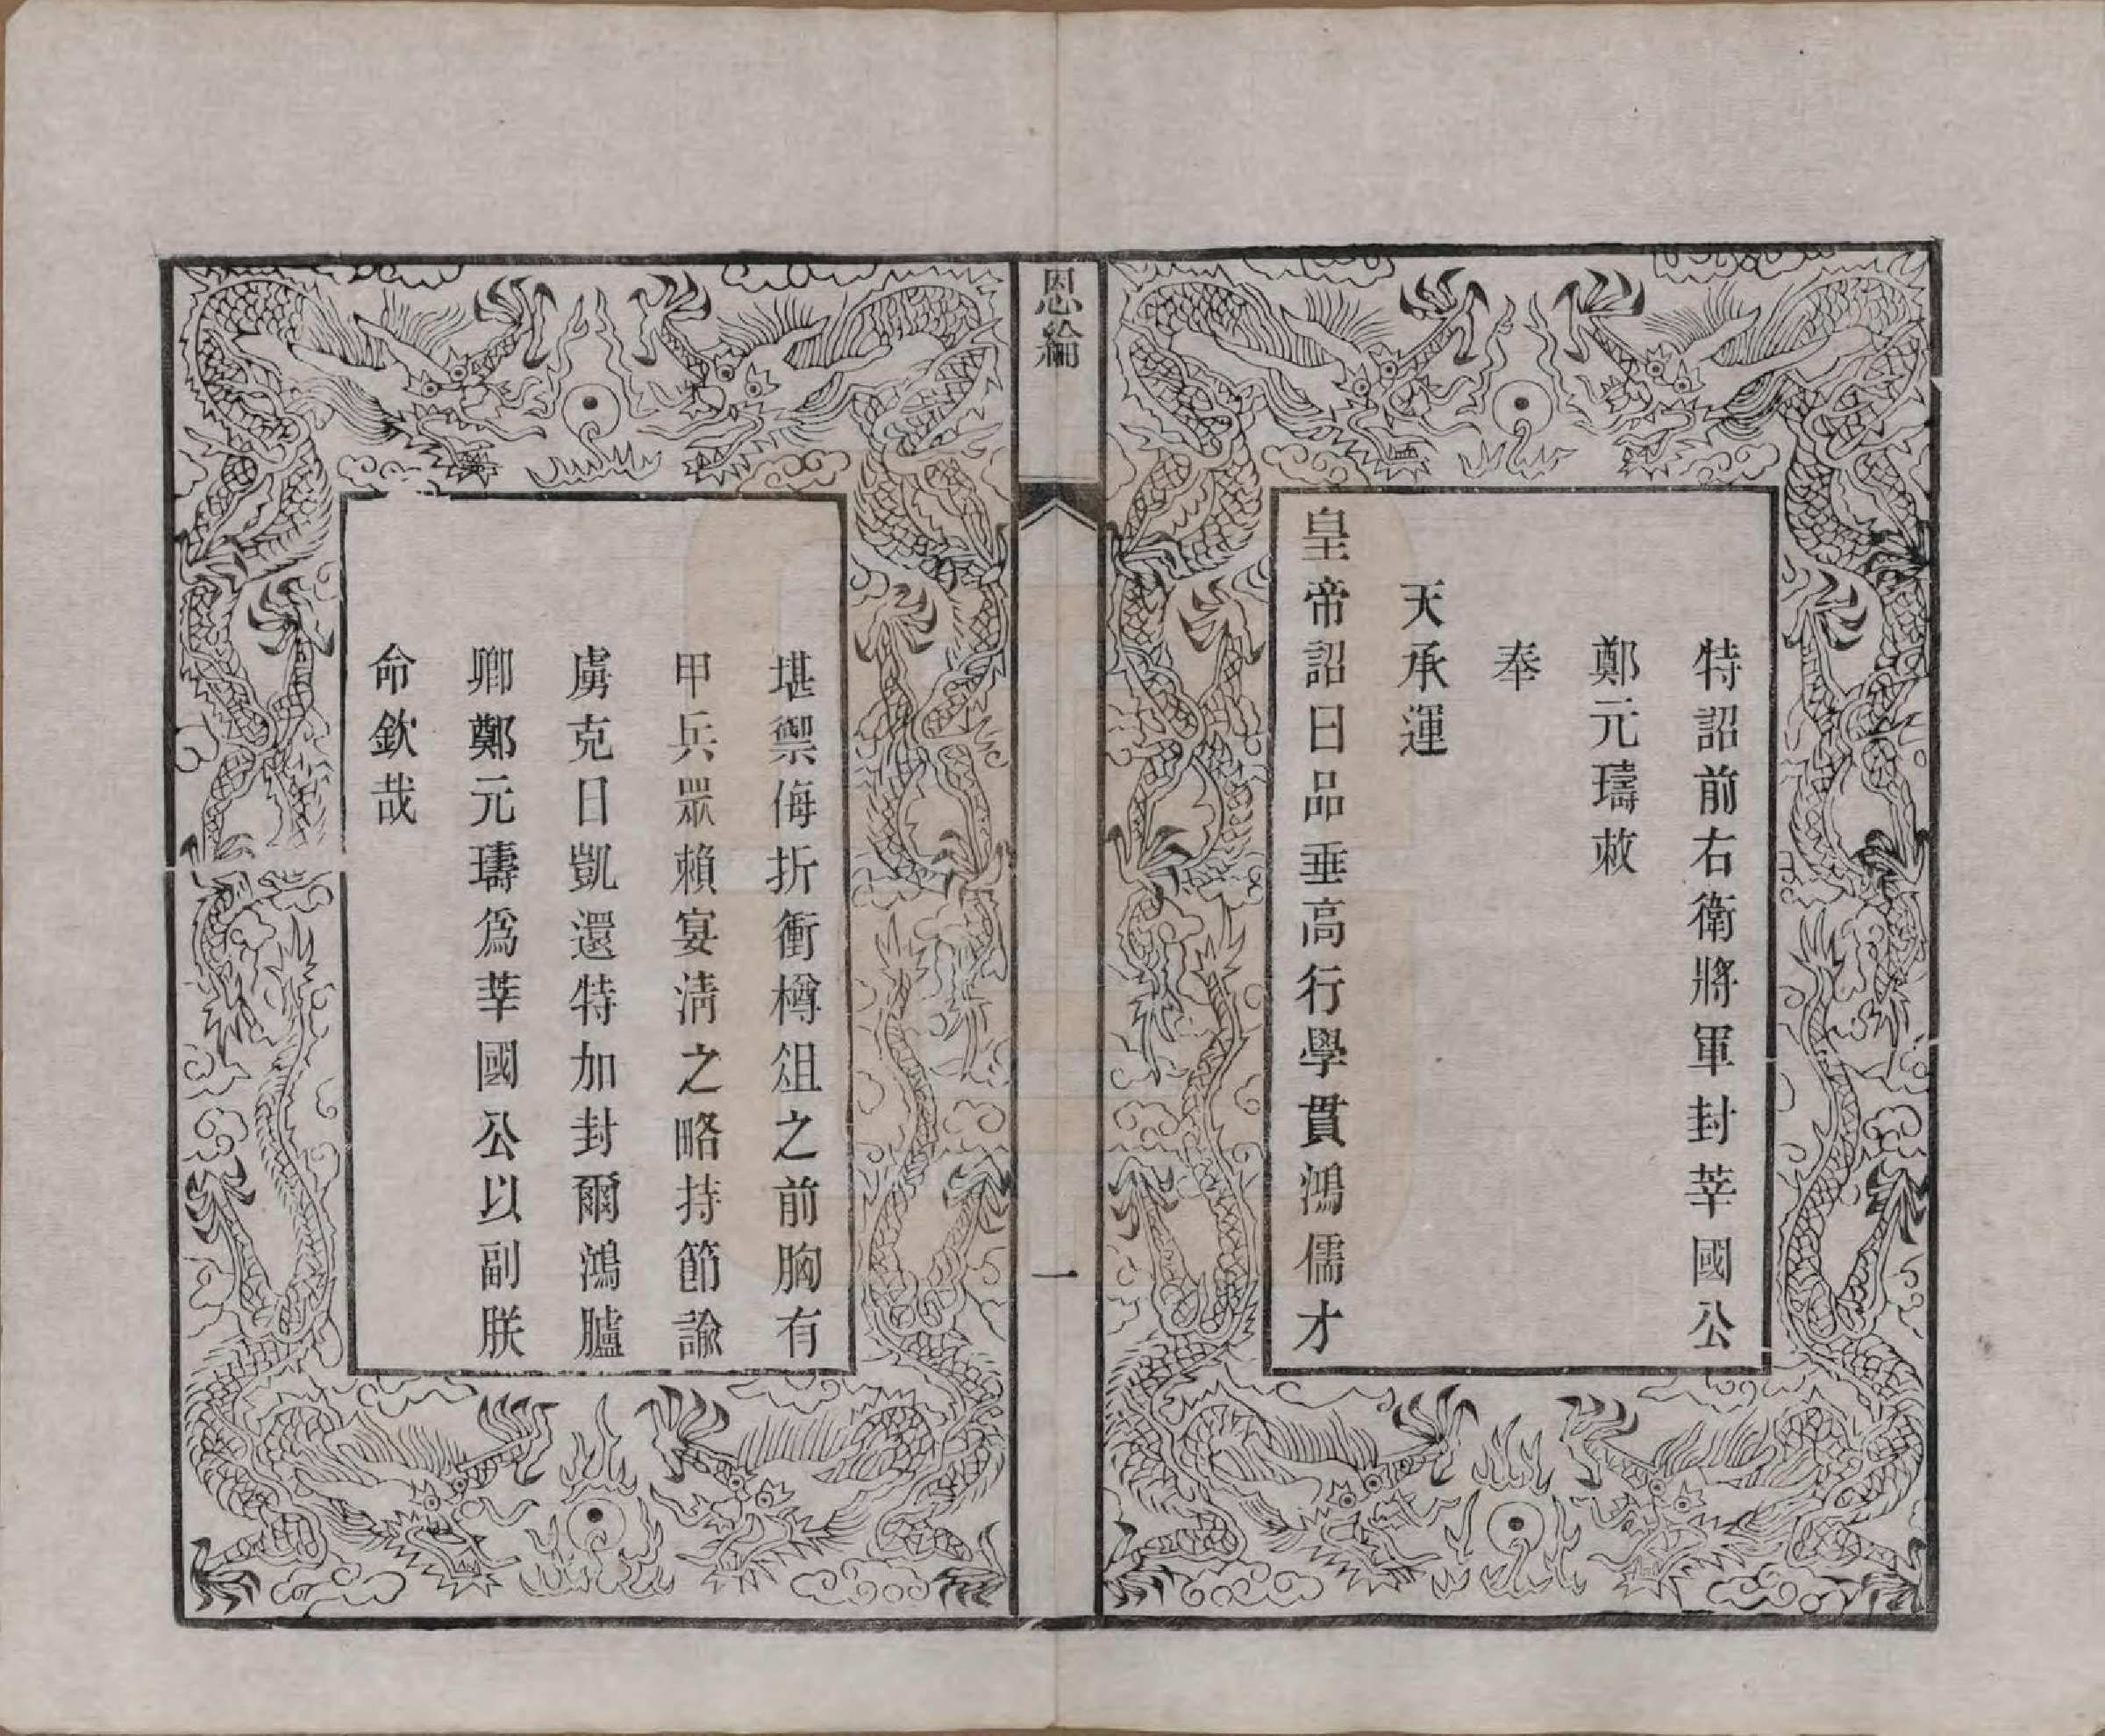 特詔前右衛將軍封莘國公
鄭元璹敕
奉
天承運
皇帝詔曰品垂高行學貫鴻儒才
恩綸
一
堪禦侮折衝樽俎之前胸有
甲兵眾賴宴淸之略持節諭
虜克日凱還特加封爾鴻臚
卿鄭元璹爲莘國公以副朕
命欽哉